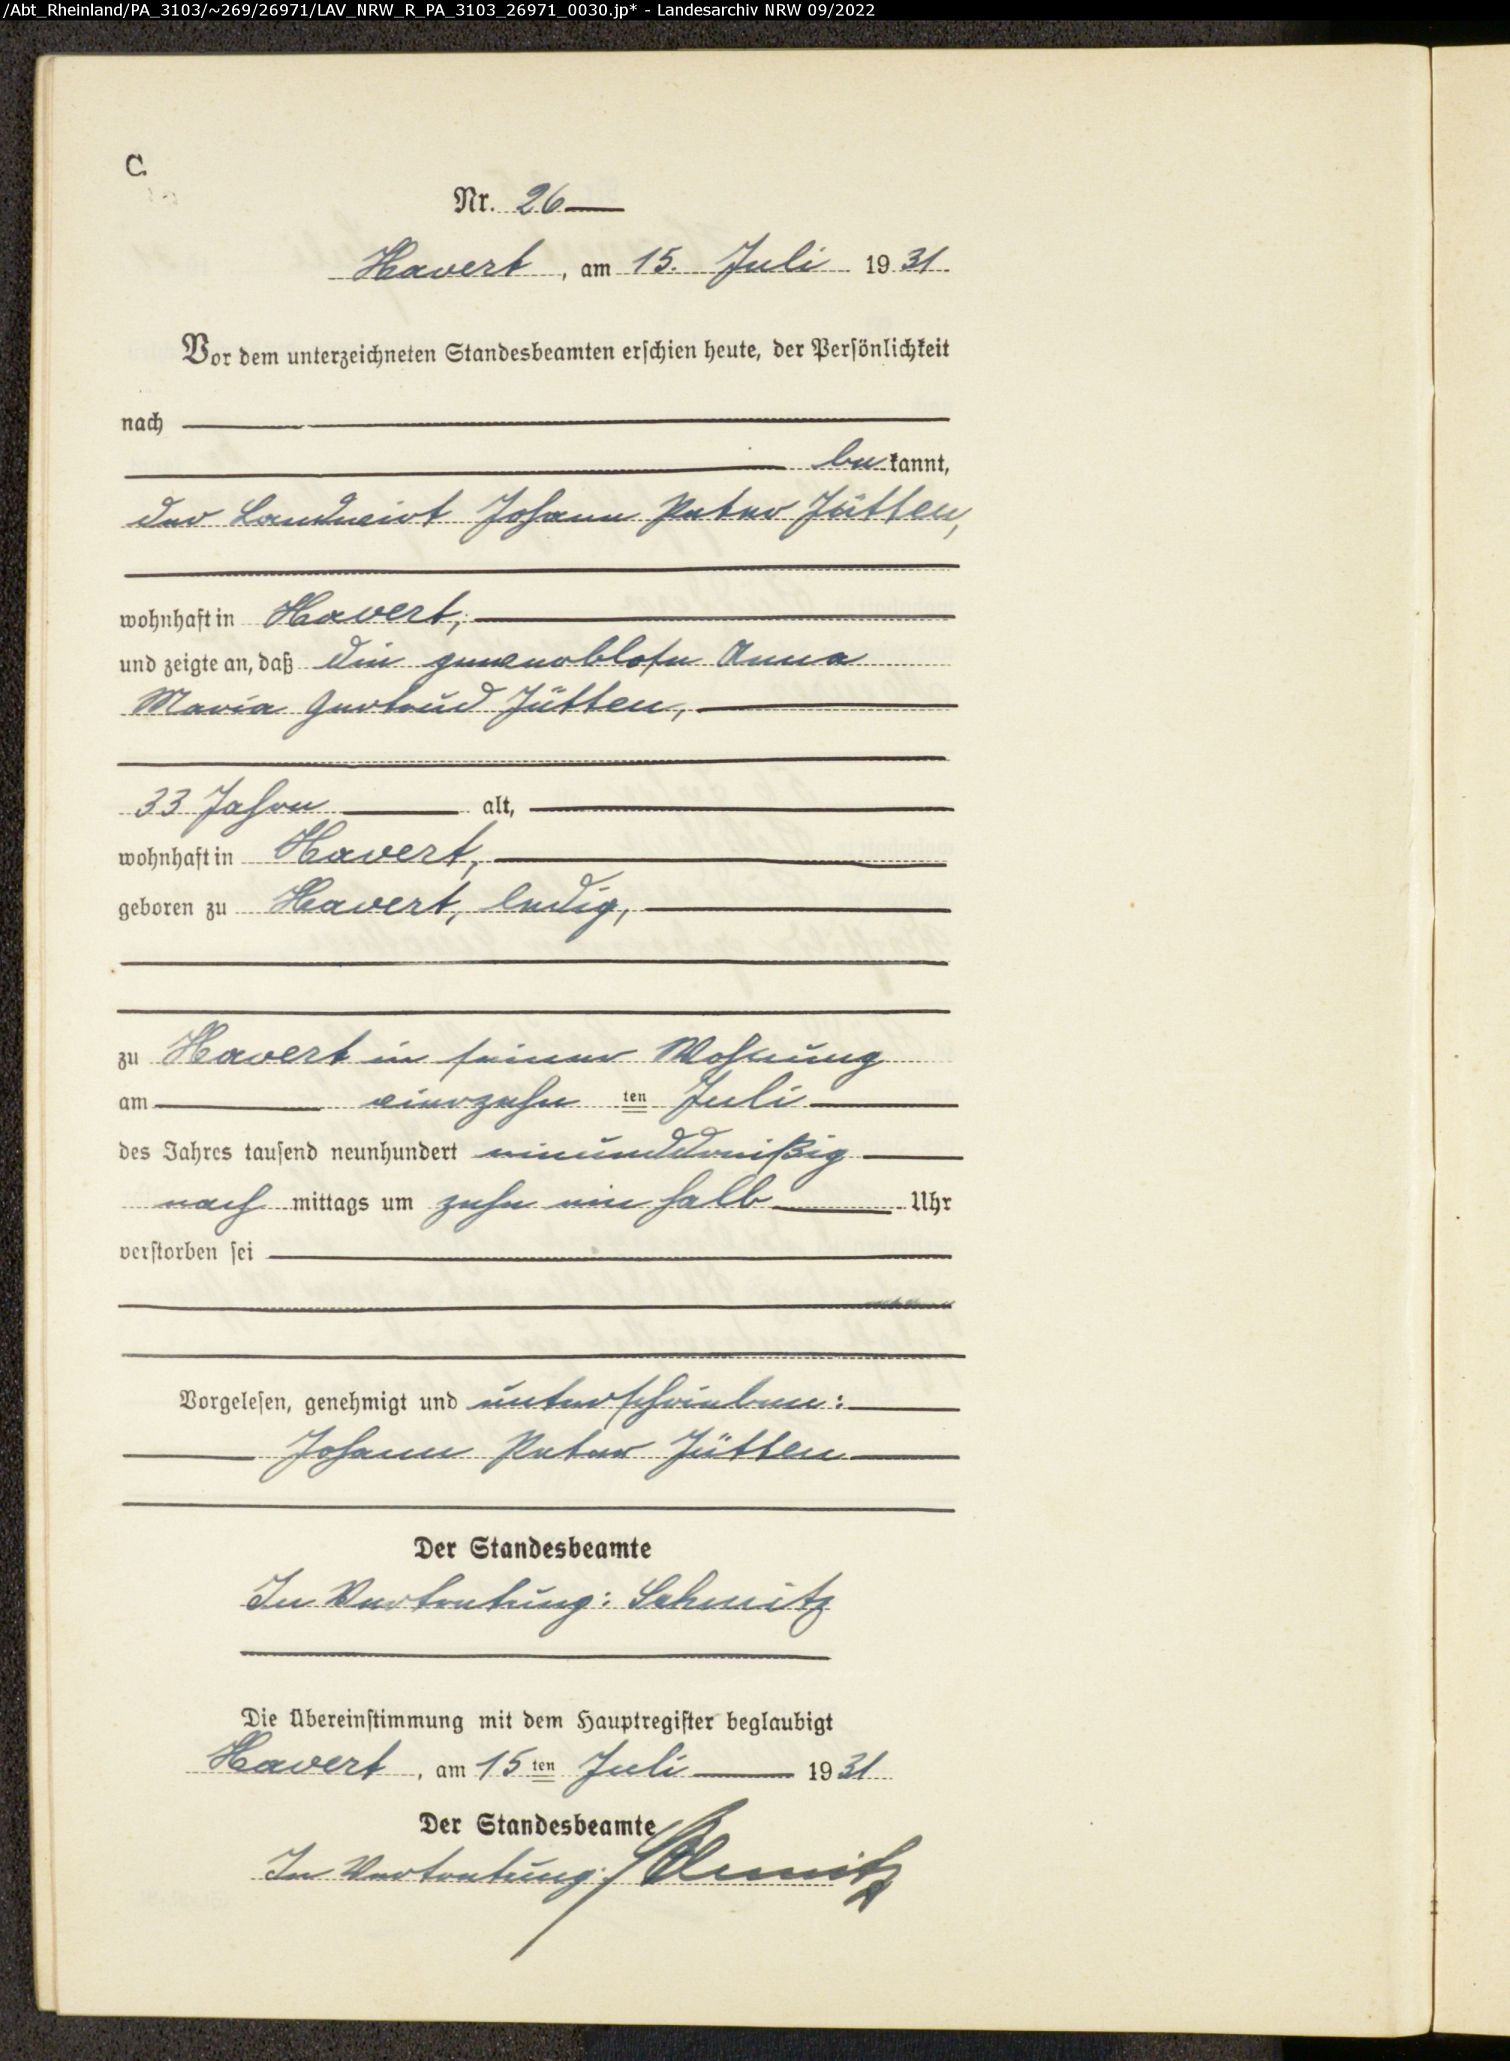 /Abt_Rheinland/PA_3103/~269/26971/LAV_NRW_R_PA_3103_26971_0030.jp* - Landesarchiv NRW 09/2022
C.
Nr. 26
Havert, am 15. Juli 1931.
Vor dem unterzeichneten Standesbeamten erschien heute, der Persönlichkeit
nach
bekannt,
der Landwirt Johann Peter Jütten,
wohnhaft in Havert,
und zeigte an, daß die gewerblose Anna
Maria Gertrud Jütten,
33 Jahre alt,
wohnhaft in Havert,
geboren zu Havert, ledig,
zu Havert in seiner Wohnung
am vierzehnten Juli
des Jahres tausend neunhundert einunddreißig
nachmittags um zehn ein halb Uhr
verstorben sei
Vorgelesen, genehmigt und unterschrieben:
Johann Peter Jütten
Der Standesbeamte
In Vertretung: Schmitz
Die Übereinstimmung mit dem Hauptregister beglaubigt
Havert, am 15ten Juli 1931
Der Standesbeamte
In Vertretung: Schmitz